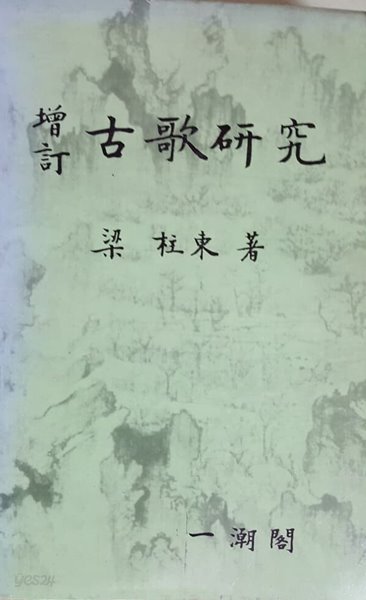 增訂 古歌研究
梁柱東 著
一潮閣
yes24